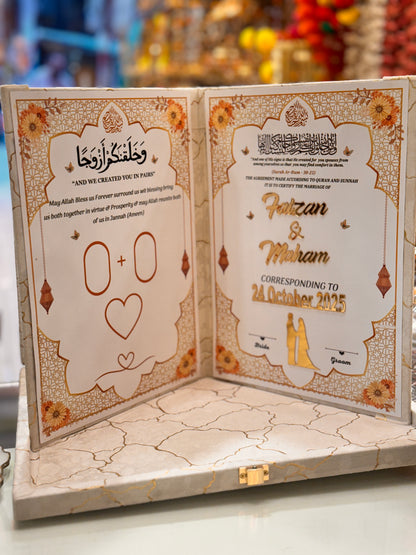 وَخَلَقْنَاكُمْ أَزْوَاجًا
"AND WE CREATED YOU IN PAIRS"
May Allah Bless us Forever surround us wit blessing bring
us both together in virtue & Prosperity & may Allah reunite both
of us in Jannah (Ameen)
+
"And one of His signs is that He created for you spouses from
among yourselves so that you may find comfort in them.
(Surah Ar-Rum - 30-21)
THE AGREEMENT MADE ACCORDING TO QURAN AND SUNNAH
IT IS TO CERTIFY THE MARRIAGE OF
Faizan
&
Maham
CORRESPONDING TO
24 October 2025
Bride
Groom